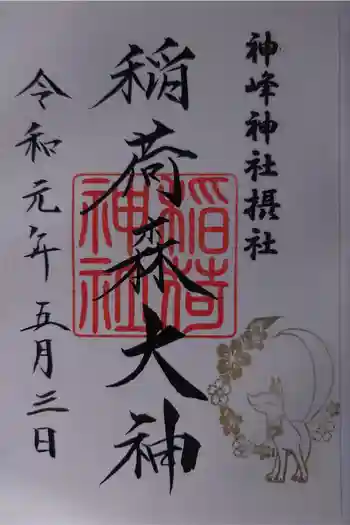 神峰神社摂社
稲荷森大神
稲荷神社
令和元年五月三日